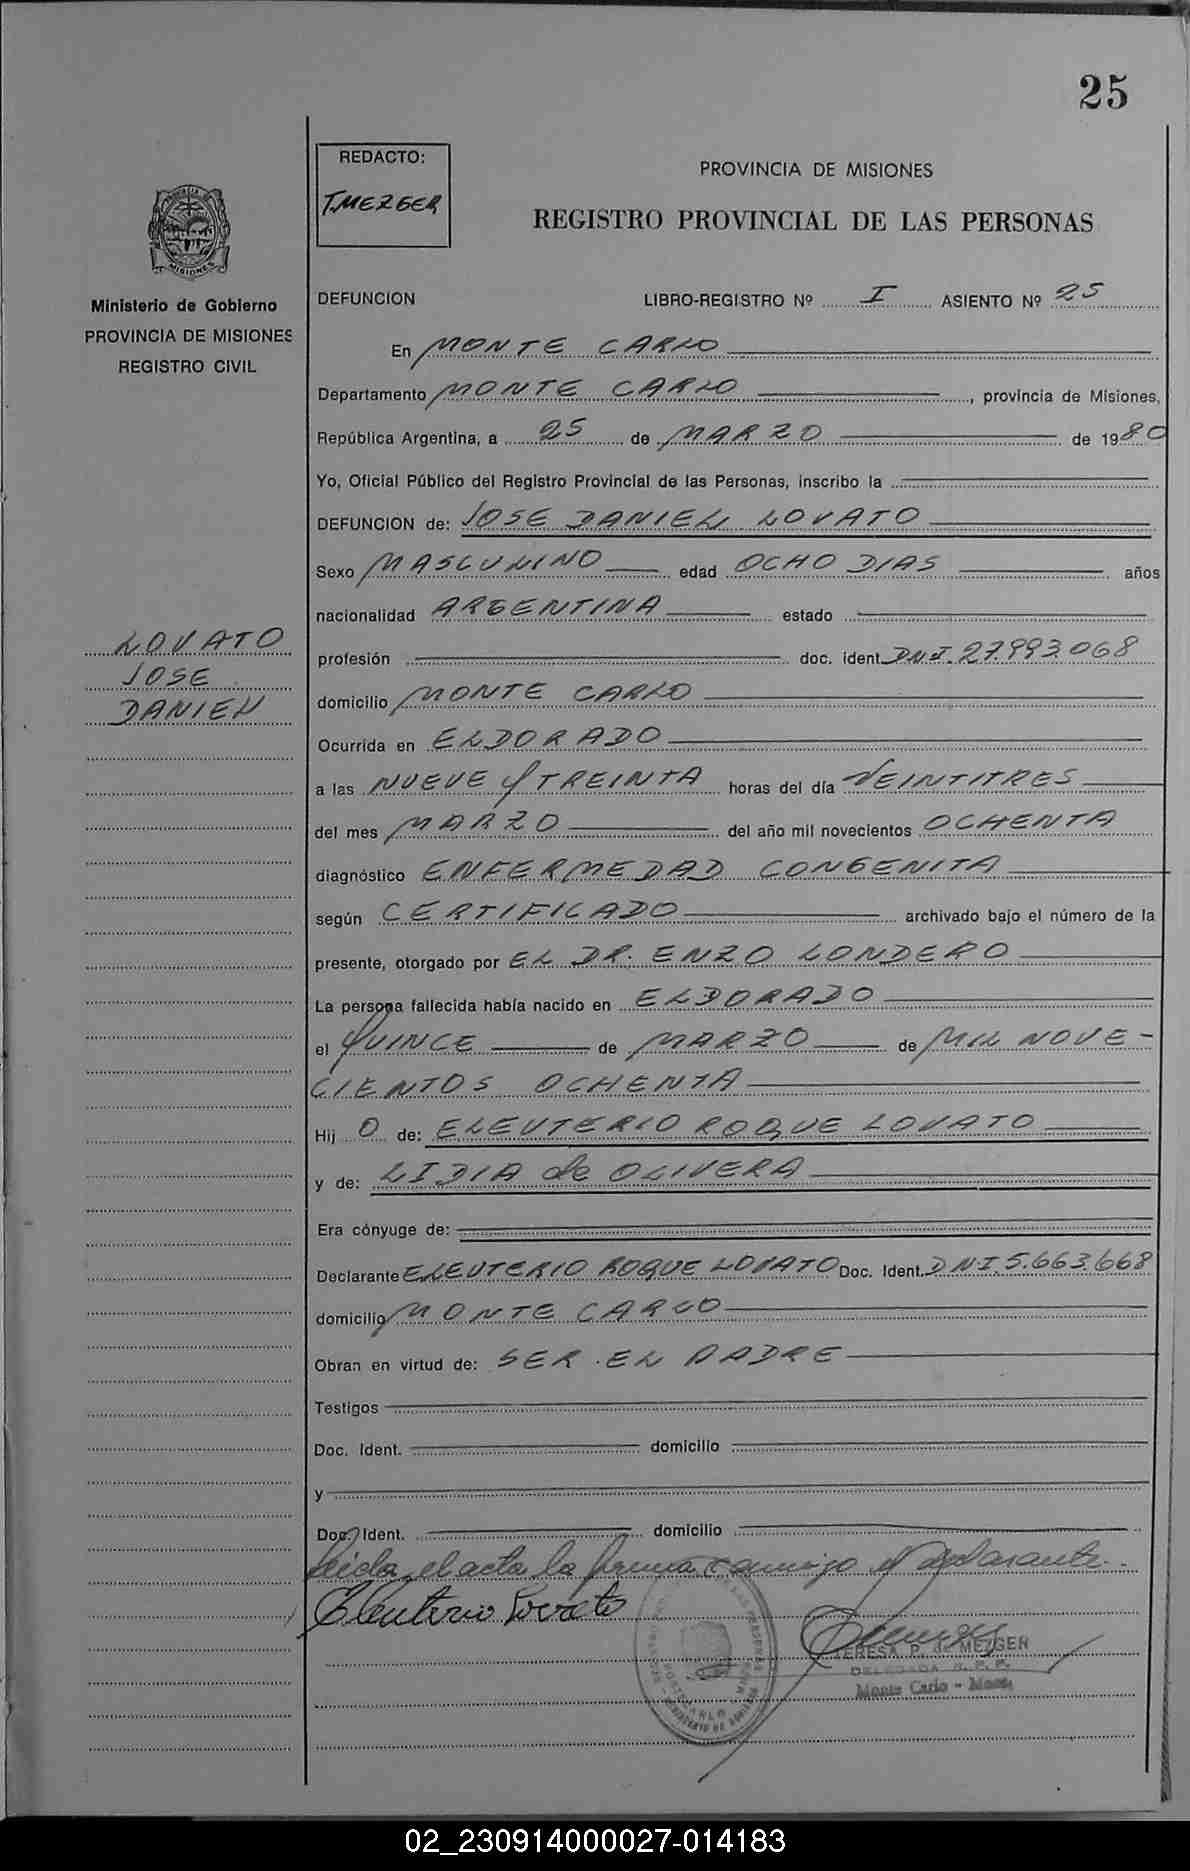 25
REDACTO:
T.MEZGER
PROVINCIA DE MISIONES
REGISTRO PROVINCIAL DE LAS PERSONAS
MISIONES
Ministerio de Gobierno
PROVINCIA DE MISIONES
REGISTRO CIVIL
LOVATO
JOSE
DANIEL
DEFUNCION LIBRO-REGISTRO Nº I ASIENTO Nº 25
En MONTE CARLO
Departamento MONTE CARLO, provincia de Misiones,
República Argentina, a 25 de MARZO de 1980
Yo, Oficial Público del Registro Provincial de las Personas, inscribo la
DEFUNCION de: JOSE DANIEL LOVATO
Sexo MASCULINO edad OCHO DIAS años
nacionalidad ARGENTINA estado
profesión doc. ident. DNI. 27.993.068
domicilio MONTE CARLO
Ocurrida en ELDORADO
a las NUEVE y TREINTA horas del día VEINTITRES
del mes MARZO del año mil novecientos OCHENTA
diagnóstico ENFERMEDAD CONGENITA
según CERTIFICADO archivado bajo el número de la
presente, otorgado por EL DR. ENZO LONDERO
La persona fallecida había nacido en ELDORADO
el QUINCE de MARZO de MIL NOVE-
CIENTOS OCHENTA
Hij O de: ELEUTERIO ROQUE LOVATO
y de: LIDIA de OLIVERA
Era cónyuge de:
Declarante ELEUTERIO ROQUE LOVATO Doc. Ident. DNI. 5.663.668
domicilio MONTE CARLO
Obran en virtud de: SER EL PADRE
Testigos
Doc. Ident. domicilio
y
Doc. Ident. domicilio
Leida el acta la firma conmigo el declarante.
Eleuterio Lovato
TERESA P. de MEZGER
DELEGADA R. P. P.
Monte Carlo - Mnes.
02_230914000027-014183